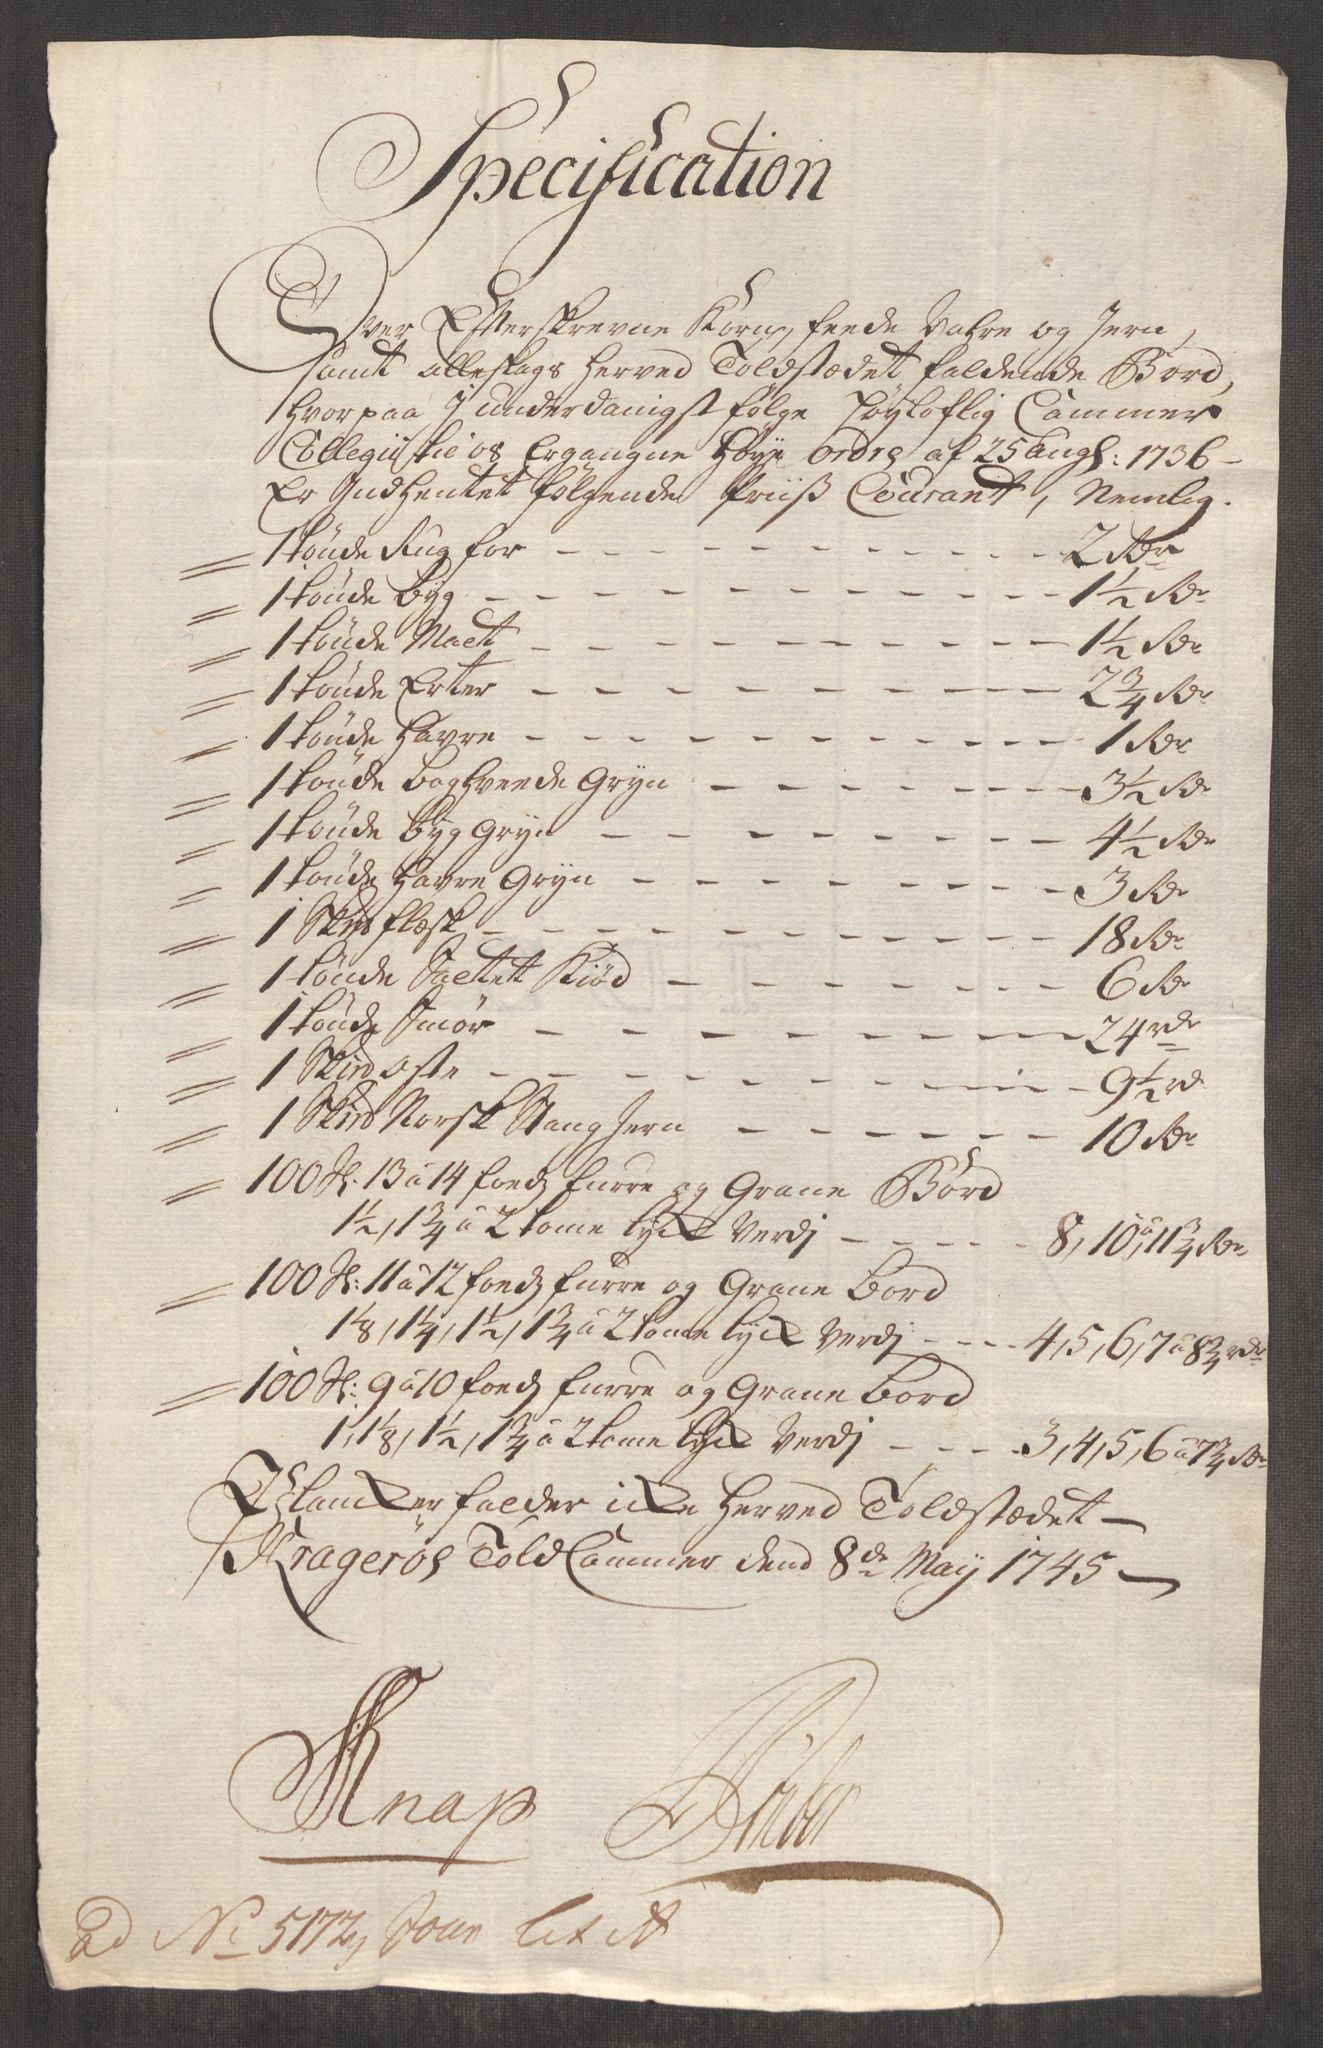 Specification
Over Efterskrevne Korn, feede Vahre og Jern,
samt alleslags herved Toldstædet faldende Bord,
hvorpaa J underdanigst følge Høyloflig Cammer
Collegii til os Ergangne høye ordre af 25 Aug: 1736 –
Er Indhentet følgende Priiß Courant, Nemlig.
1 tønde Rug for – – – 2 Rdr
1 tønde byg – – – 1½ Rdr
1 tønde Malt – – – 1½ Rdr
1 tønde Erter – – – 2¾ Rdr
1 tønde havre – – – 1 Rdr
1 tønde boghveede Gryn – – – 3½ Rdr
1 tønde byg Gryn – – – 4½ Rdr
1 tønde havre Gryn – – – 3 Rdr
1 Skpd flæsk – – – 18 Rdr
1 tønde Saltet Kiød – – – 6 Rdr
1 tønde Smør – – – 24 rdr
1 Skpd oste – – – 9½ rd
1 Skpd Norsk Stang Jern – – – 10 Rdr
100 St: 13 à 14 foeds furre og Grane Bord
1½, 1¾ à 2 tome tyck Verdj – – – 8, 10 à 11¾ Rdr
100 St: 11 à 12 foeds furre og Grane bord
1⅛, 1¼, 1½, 1¾ à 2 tome tyck Verdj – – – 4, 5, 6, 7 à 8¾ rdr
100 St: 9 à 10 foeds furre og Grane bord
1, 1⅛, 1½, 1¾ à 2 tome tyck Verdj – – – 3, 4, 5, 6 à 7¾ Rdr
Plancker falder icke herved Toldstædet –
Kragerøes Told Cammer dend 8de Maij 1745 –
Knap
ad No 5172, Jour Lit A